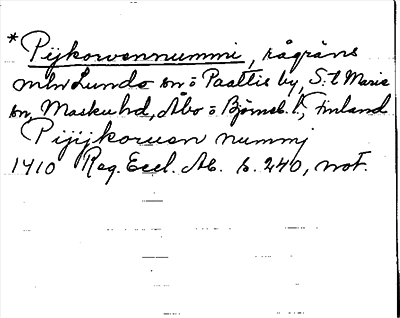 *Pijkorvennummi, rågräns
mln Lundo sn o Paattis by, S:t Marie
sn, Masku hd, Åbo o Björneb. l., Finland
Pijijkoruen nummj
1410 Reg. Eccl. Ab. s. 240, not.